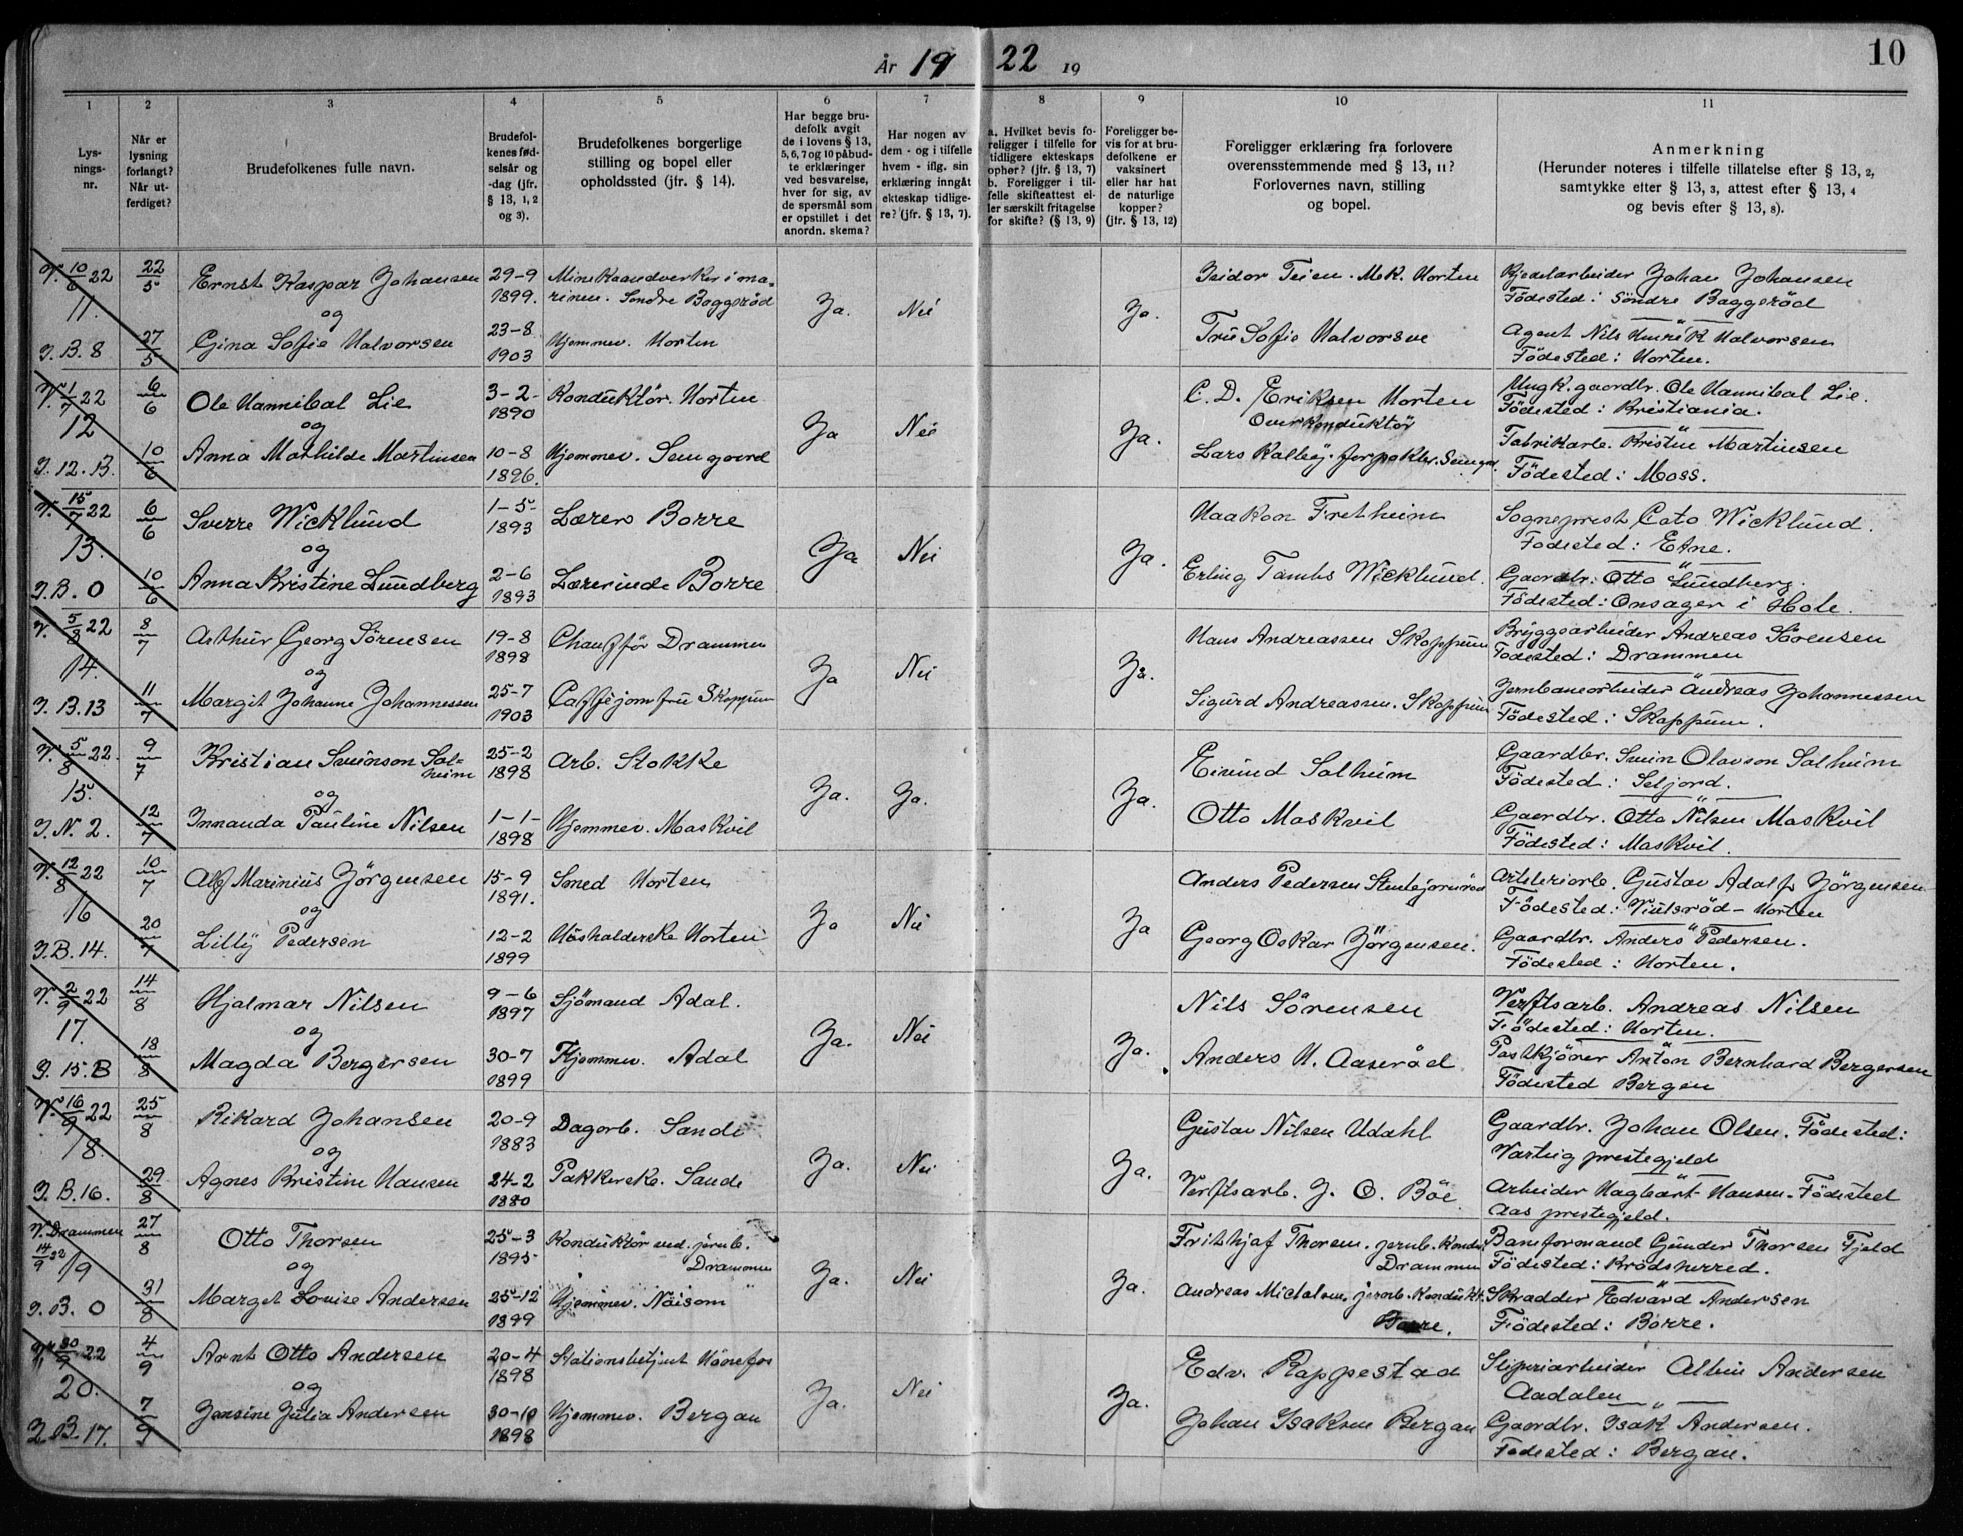 År 19 22 19
10
1 2 3 4 5 6 7 8 9 10 11
Lysnings-nr.
Når er lysning forlangt? Når utferdiget?
Brudefolkenes fulle navn.
Brudefolkenes fødselsår og -dag (jfr. § 13, 1, 2 og 3).
Brudefolkenes borgerlige stilling og bopel eller opholdssted (jfr. § 14).
Har begge brudefolk avgit de i lovens § 13, 5, 6, 7 og 10 påbudte erklæringer ved besvarelse, hver for sig, av de spørsmål som er opstillet i det anordn. skema?
Har nogen av dem - og i tilfelle hvem - iflg. sin erklæring inngåt ekteskap tidligere? (jfr. § 13, 7).
a. Hvilket bevis foreligger i tilfelle for tidligere ekteskaps ophør? (jfr. § 13, 7) b. Foreligger i tilfelle skifteattest eller særskilt fritagelse for skifte? (§ 13, 9)
Foreligger bevis for at brudefolkene er vaksinert eller har hat de naturlige kopper? (jfr. § 13, 12)
Foreligger erklæring fra forlovere overensstemmende med § 13, 11? Forlovernes navn, stilling og bopel.
Anmerkning (Herunder noteres i tilfelle tillatelse efter § 13, 2, samtykke efter § 13, 3, attest efter § 13, 4 og bevis efter § 13, 8).
V. 10/6 22 22/5 Ernst Kaspar Johansen 29-9 1899. Minehaandverker i marinen. Søndre Baggerød Isidor Teien. Mek. Horten Kjedelarbeider Johan Johansen
Födested: Söndre Baggeröd
11. og Ja. Nei Ja.
J.B. 8 27/5 Gina Sofie Halvorsen 23-8 1903 Hjemmev. Horten Fru Sofie Halvorsen Agent Nils Henrik Halvorsen
Födested: Horten.
V. 1/7 22 6/6 Ole Hannibal Lie 3-2- 1890 Konduktör. Horten C. D. Eriksen Horten Overkonduktör Ungk. gaardbr. Ole Hannibal Lie.
Födested: Kristiania.
12 og Ja Nei Ja.
J. 12. B. 10/6 Anna Mathilde Martinsen 10-8 1896. Hjemmev. Semgaard Lars Kalleöj. forpakter. Semgrd. Fabrikarb. Kristin Martinsen
Födested: Moss.
V. 15/7 22 6/6 Sverre Wicklund 1-5- 1893 Lærer Borre Haakon Fretheim Sogneprest Cato Wicklund.
Födested: Etne.
13. og Ja Nei Ja.
J.B. 0 10/6 Anna Kristine Lundberg 2-6 1893 Lærerinde Borre Erling Tambs Wicklund. Gaardbr. Otto Lundberg.
Födested: Onsager i Hole.
V. 5/8 22 8/7 Arthur Georg Sörensen 19-8 1898 Chaufför Drammen Hans Andreassen Skoppum Bryggearbeider Andreas Sörensen
Födested: Drammen
14. og Ja Nei Ja.
J.B. 13 11/7 Margit Johanne Johannessen 25-7 1903 Caffejomfru Skoppum Sigurd Andreassen. Skoppum Jernbanearbeider Andreas Johannessen
Födested: Skoppum.
V. 5/8 22. 9/7 Kristian Sveinson Solheim 25-2 1898 Arb. Stokke Eivind Solheim Gaardbr. Svein Olavson Solheim
Födested: Seljord.
15. og Ja. Ja. Ja.
J.N. 2. 12/7 Innanda Pauline Nilsen 1-1- 1898 Hjemmev. Maskvil Otto Maskvil Gaardbr. Otto Nilsen Maskvil
Födested: Maskvil.
V. 12/8 22 10/7 Alf Marinius Jörgensen 15-9 1891. Smed Horten Anders Pedersen Artilleriarb. Gustav Adolf Jörgensen
Födested: Viulsröd - Horten
16 og Ja Nei Ja
J.B. 14. 20/7 Lilly Pedersen 12-2 1899 Husholderske Horten Georg Oskar Jörgensen. Gaardbr. Anders Pedersen.
Födested: Horten.
V. 2/9 22 14/8 Hjalmar Nilsen 9-6 1897 Sjömand Adal. Nils Sörensen Verftsarb. Andreas Nilsen
Födested: Horten.
17. og Ja. Nei Ja.
J. 15. B 18/8 Magda Bergersen 30-7 1899 Hjemmev. Adal Anders H. Aaseröd Postkjörer Anton Bernhard Bergersen
Födested Bergen
V. 16/9 22 25/8 Rikard Johansen 20-9 1883 Dagarb. Sande Gustav Nilsen Udahl Gaardbr. Johan Olsen. Födested:
Varteig prestegjeld
18. og Ja. Nei Ja.
J.B. 16. 29/8 Agnes Kristine Hansen 24-2 1880 Pakkerske. Sande Verftsarb. J. O. Böe Arbeider Hagbart Hansen - Födested
Aas prestegjeld.
V. Drammen 14/9 22 27/8 Otto Thorsen 25-3 1895 Konduktör ved. jernb. Drammen Frithjof Thorsen. jernb. kondu. Drammen Baneformand Gunder Thorsen Fjeld
Födested: Krödsherred.
19 og Ja. Nei Ja.
J.B. 0 31/8 Marget Lovise Andersen 25-12 1899 Hjemmev. Nöisom Andreas Michalsen, jernb. kondukt. Borre. Skradder Edvard Andersen
Födested: Borre.
V. 30/9 22 4/9 Arnt Otto Andersen 20-4 1898 Stationsbetjent Hönefos Edv. Rappestad Sliperiarbeider Albin Andersen
Aadalen
20. og Ja. Nei Ja.
J.B. 17. 7/9 Jensine Julia Andersen 30-10 1898 Hjemmev. Bergan Johan Isaksen Bergan Gaardbr. Isak Andersen.
Födested: Bergan.